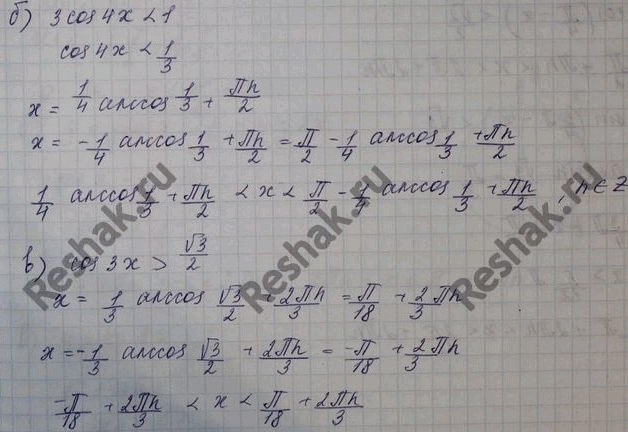 б) 3 cos 4x < 1
cos 4x < 1/3
x = 1/4 arccos 1/3 + πn/2
x = -1/4 arccos 1/3 + πn/2 = π/2 - 1/4 arccos 1/3 + πn/2
1/4 arccos 1/3 + πn/2 < x < π/2 - 1/4 arccos 1/3 + πn/2, n ∈ Z
в) cos 3x > √3/2
x = 1/3 arccos √3/2 + 2πn/3 = π/18 + 2/3 πn
x = -1/3 arccos √3/2 + 2πn/3 = -π/18 + 2/3 πn
-π/18 + 2πn/3 < x < π/18 + 2πn/3
Reshak.ru
Reshak.ru
Reshak.ru